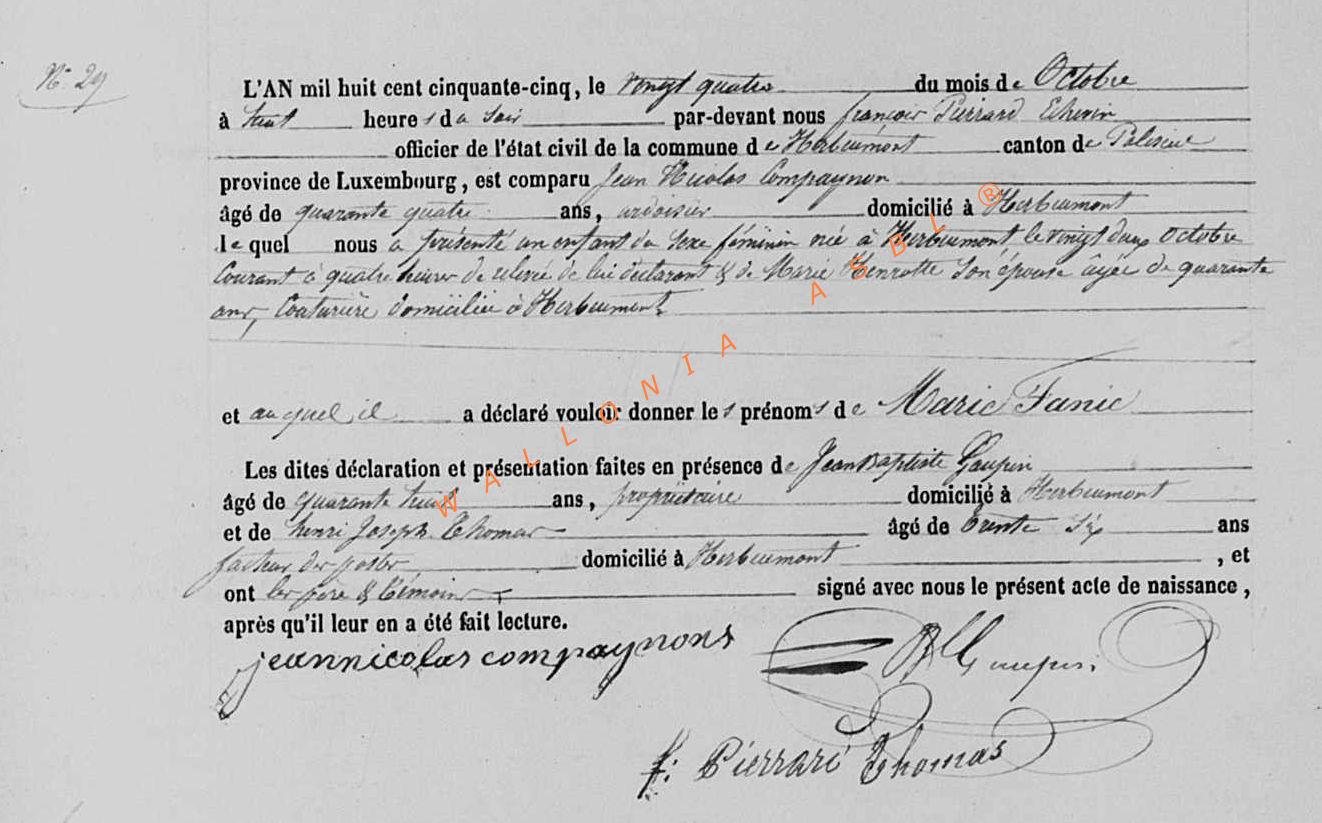 N° 29
L'AN mil huit cent cinquante-cinq, le vingt quatre du mois de Octobre
à huit heures du soir par-devant nous françois Pierrard Echevin
officier de l'état civil de la commune de Herbeumont canton de Paliseul
province de Luxembourg, est comparu Jean Nicolas Compagnon
âgé de quarante quatre ans, ardoisier domicilié à Herbeumont
lequel nous a présenté un enfant du sexe féminin née à Herbeumont le vingt deux Octobre
Courant à quatre heures de relevée de lui déclarant & de Marie Henrotte son épouse âgée de quarante
ans, Couturière domiciliée à Herbeumont
et auquel il a déclaré vouloir donner les prénoms de Marie Fanie
Les dites déclaration et présentation faites en présence de Jean Baptiste Gaupin
âgé de quarante huit ans, propriétaire domicilié à Herbeumont
et de henri Joseph Thomas âgé de trente six ans
facteur des postes domicilié à Herbeumont, et
ont les père & témoins signé avec nous le présent acte de naissance,
après qu'il leur en a été fait lecture.
jeannicolas compagnons
Gaupin
f: Pierrard Thomas
WALLONIA ASBL ®